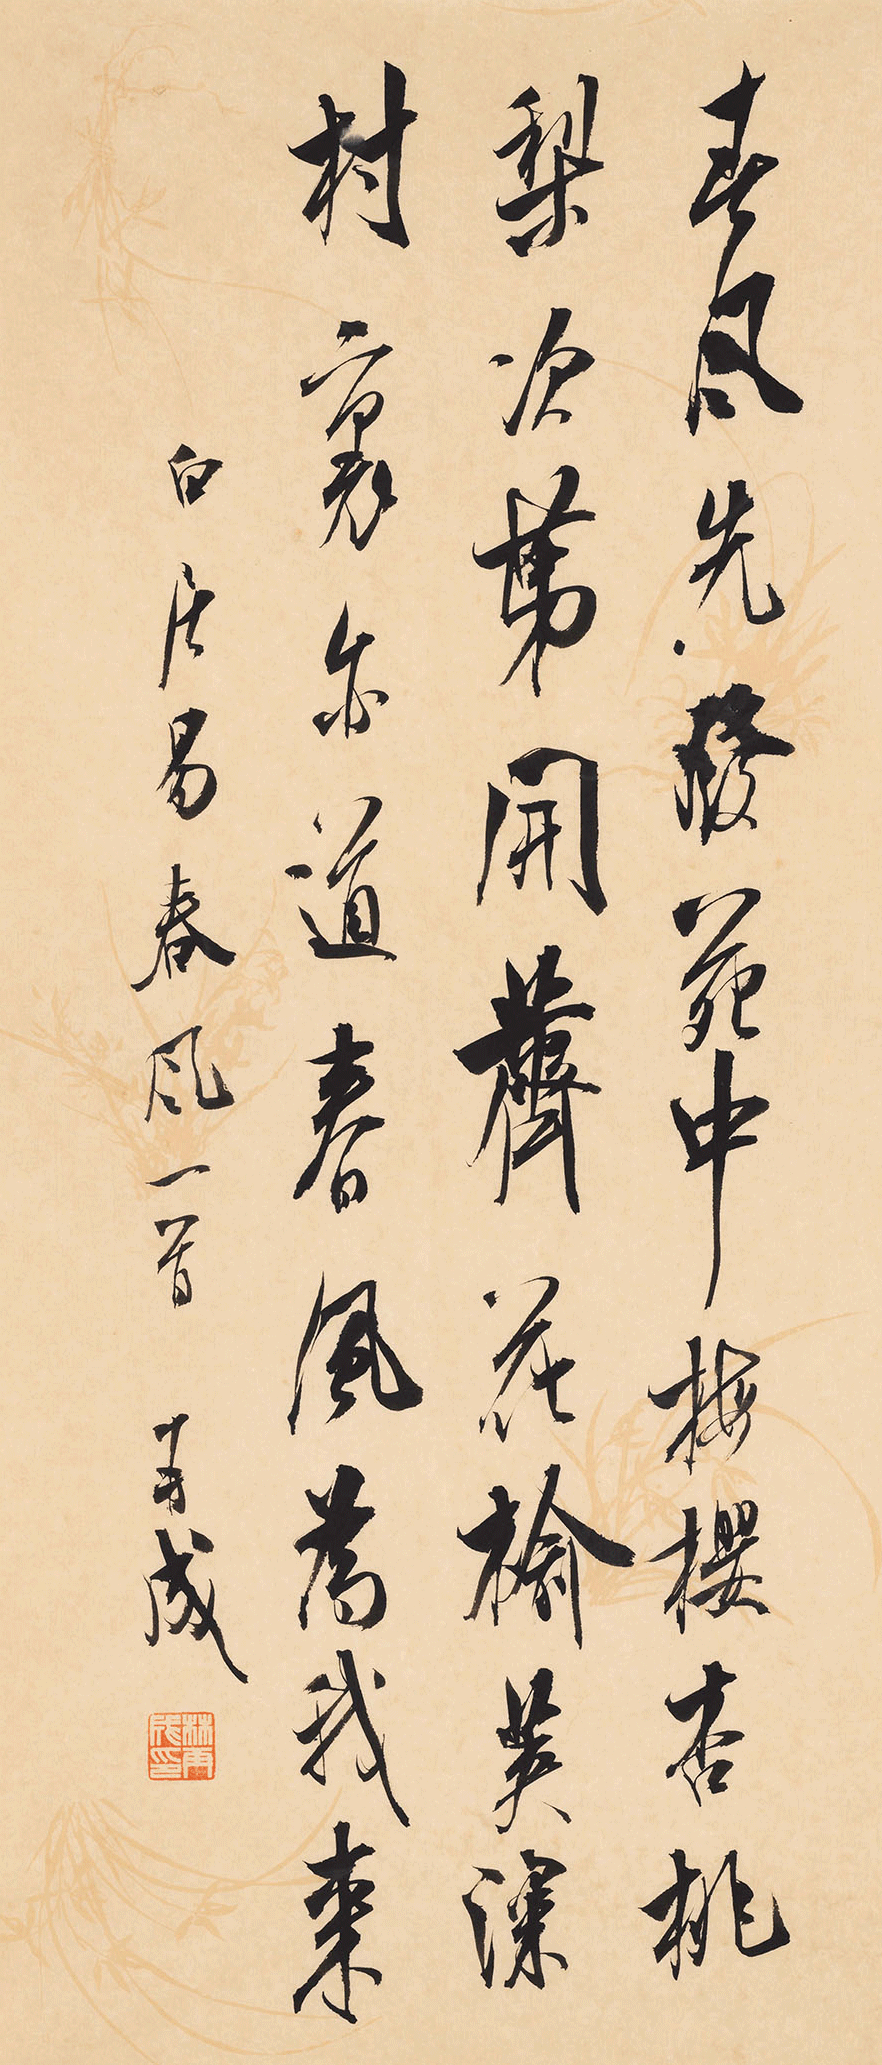 春風先發苑中梅櫻杏桃
梨次第開薺花榆莢深
村裏亦道春風為我來
白居易春風一首 再成
林再成印